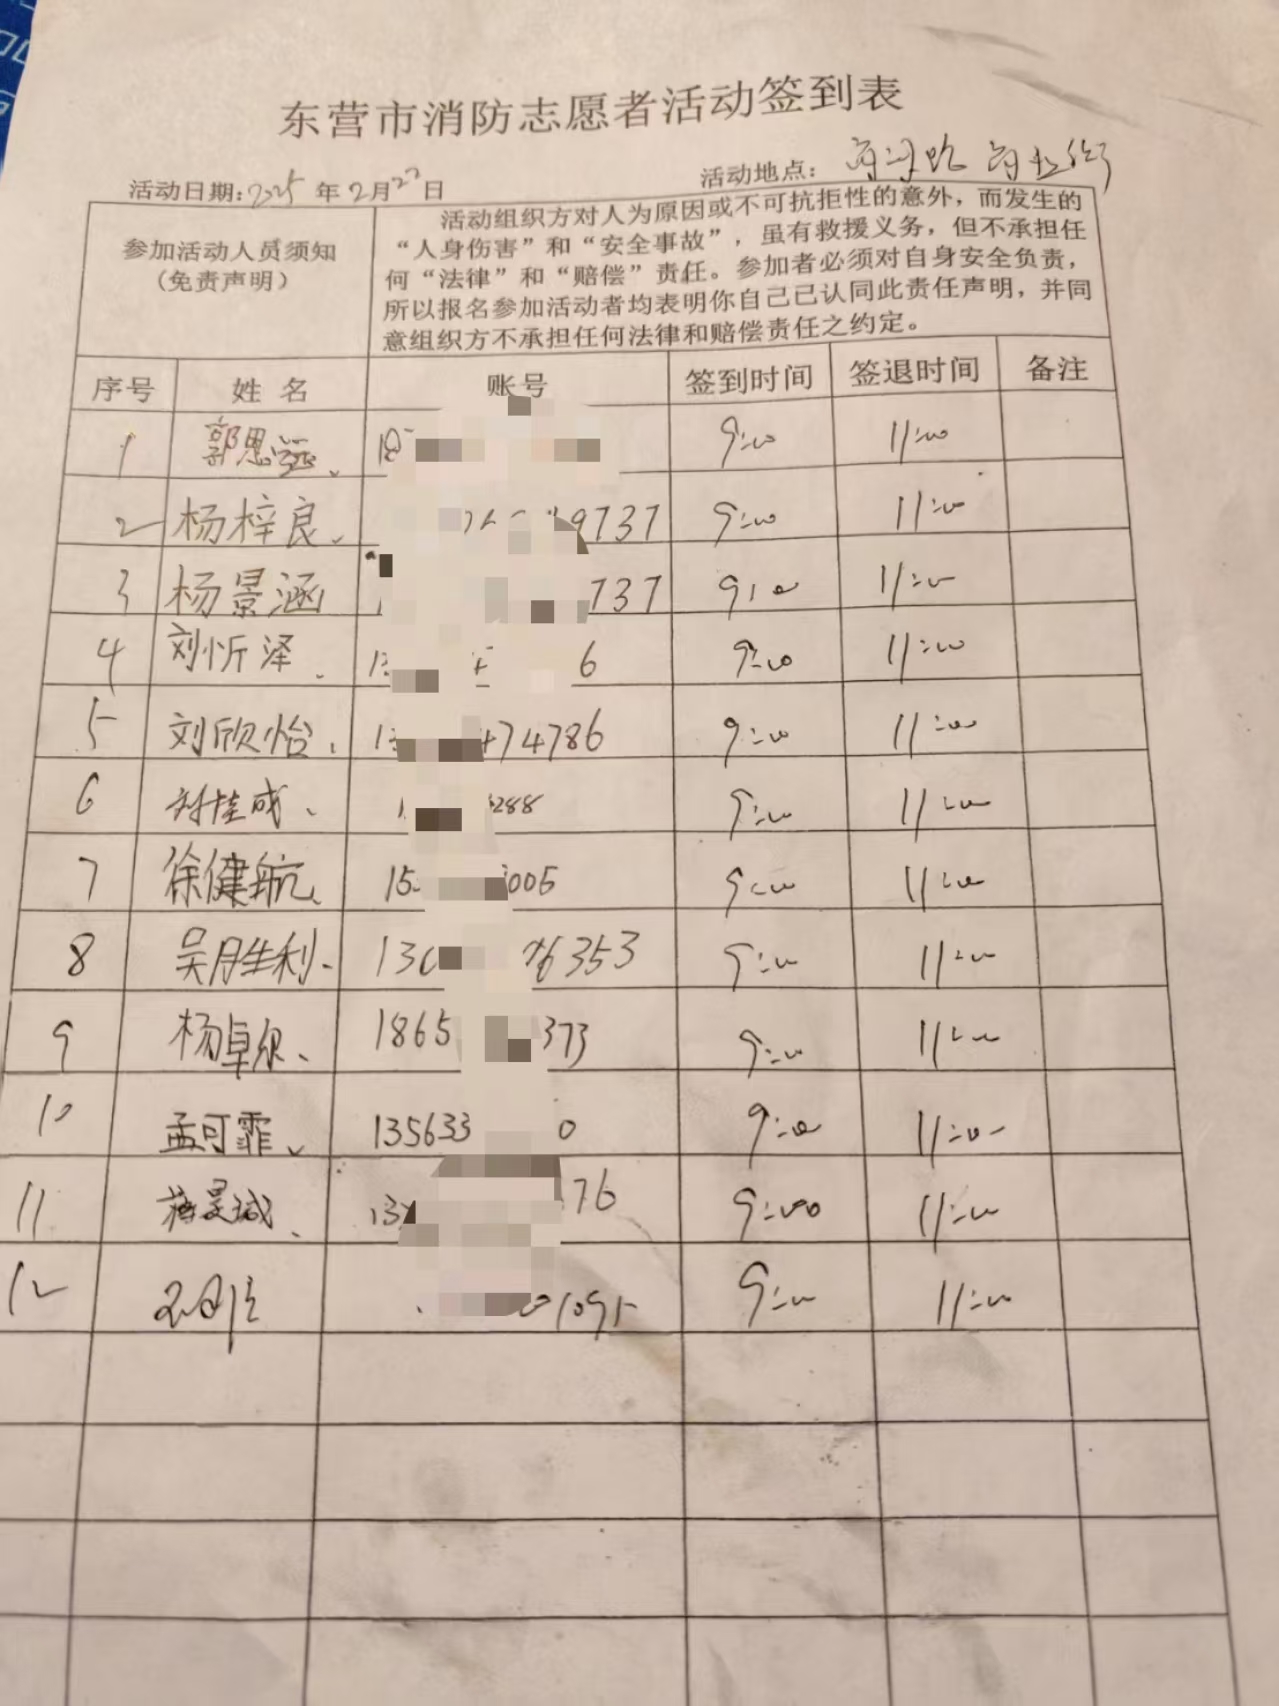 东营市消防志愿者活动签到表
活动日期:2025年2月22日 活动地点:
参加活动人员须知
(免责声明)
活动组织方对人为原因或不可抗拒性的意外,而发生的
“人身伤害”和“安全事故”,虽有救援义务,但不承担任
何“法律”和“赔偿”责任。参加者必须对自身安全负责,
所以报名参加活动者均表明你自己已认同此责任声明,并同
意组织方不承担任何法律和赔偿责任之约定。
序号 姓名 账号 签到时间 签退时间 备注
1 郭思远 18 9:00 11:00
2 杨梓良 9737 9:00 11:00
3 杨景涵 737 9:00 11:00
4 刘忻泽 13 6 9:00 11:00
5 刘欣怡 13 474786 9:00 11:00
6 刘桂成 1 288 9:00 11:00
7 徐健航 15 005 9:00 11:00
8 吴胜利 130 76353 9:00 11:00
9 杨卓尔 1865 373 9:00 11:00
10 孟可霏 135633 0 9:00 11:00
11 13 76 9:00 11:00
12 1095 9:00 11:00